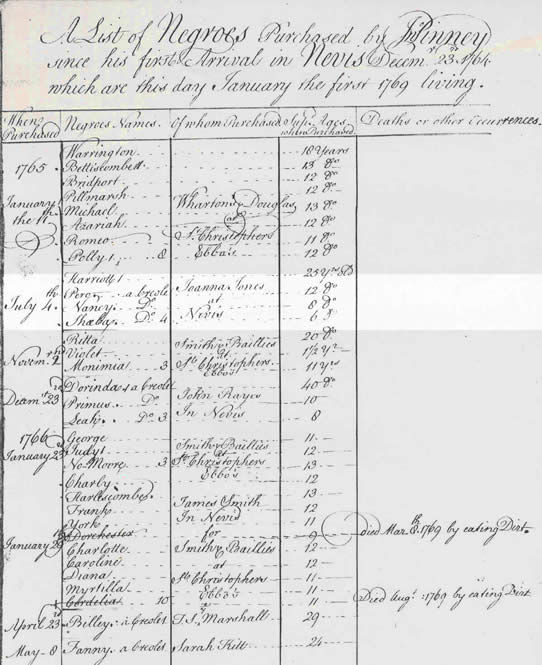 A List of Negroes Purchased by Jn. Pinney
since his first Arrival in Nevis Decemr. 23, 1764
which are this day January the first 1769 living.
When Purchased Negroes Names. Of whom Purchased Sup. Ages when Purchased. Deaths or other Occurrences.
1765 Warrington 18 Years
Bettiscombett 13 do
Bridport 12 do
January the 11th Pillmarsh Whartons & Douglas 12 do
Michael at 13 do
Azariah St. Christophers 12 do
Romeo Ebbo's 11 do
Polly 8 12 do
Harriott 25 Yrs Old
July 4th Pero a Creole Joanna Jones 12 do
Nancy Do at 8 do
Sheba Do 4 Nevis 6 do
Ritta Smith & Baillies 20 do
Novemr. Violet at 1 1/2 Yr
Monimia 3 St. Christophers Ebbo's 11 yrs
Decemr. 23 Dorinda a Creole John Hayes 40 do
Primus Do 10
Leah Do 3 In Nevis 8
1766 George Smith & Baillies 11
January 23 Judy at 12
No-Moore 3 St. Christophers 13
Charly Ebbo's 12
Harlescombe 13
Frank James Smith 12
York In Nevis 11
January Dorchester for 9 died Mar. 8th 1769 by eating Dirt.
Charlotte Smith & Baillies 12
Caroline at 12
Diana St. Christophers 11
Myrtilla Ebbo's 11
Cordelia 10 11 Died Augt. 1769 by eating Dirt
April 23 Billey a Creole T. S. Marshall 29
May 8 Fanny a Creole Sarah Kitt 24